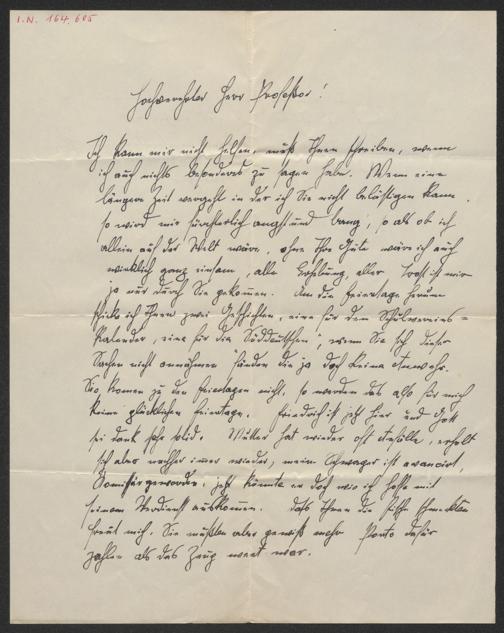 I.N. 164.605
Hochverehrter Herr Professor!
Ich kann mir nicht helfen, muß Ihnen schreiben, wenn
ich auch nichts besonderes zu sagen habe. Wenn eine
längere Zeit vergeht in der ich Sie nicht belästigen kann
so wird mir fürchterlich angst und bang, so als ob ich
allein auf der Welt wäre, ohne Ihre Güte wäre ich auch
wirklich ganz einsam, alle Erhebung, aller Trost ist mir
ja nur durch Sie gekommen. Um die Feiertage herum
schicke ich Ihnen zwei Geschichten, eine für den Schulvereins=
kalender, eine für die Süddeutschen, wenn Sie sich dieser
Sachen nicht annähmen fänden die ja doch keine
Sie kommen zu den Feiertagen nicht, so werden das also für mich
keine glücklichen Feiertage. Friedrich ist jetzt hier und Gott
sei dank sehr solid. Mutter hat wieder oft Anfälle, erholt
sich aber nachher immer wieder, mein Schwager ist avanciert,
geworden, jetzt könnte er doch wie ich hoffe mit
seinem Verdienst auskommen. Daß Ihnen die schmeckten
freut mich. Sie mußten aber gewiß mehr Porto dafür
zahlen als das Zeug wert war.